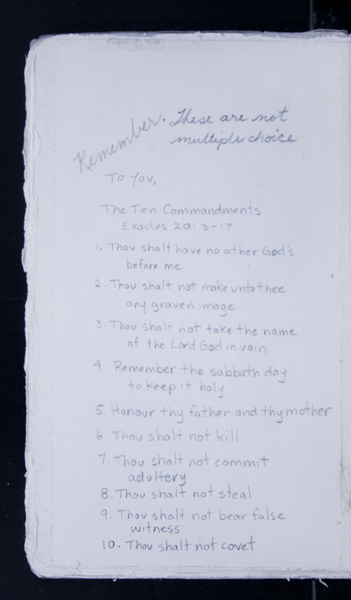 Remember. These are not
multiple choice
To You,
The Ten Commandments
Exodus 20:3-17
1. Thou shalt have no other God's
before me
2. Thou shalt not make unto thee
any graven image
3. Thou shalt not take the name
of the Lord God in vain
4. Remember the sabbath day
to keep it holy
5. Honour thy father and thy mother
6. Thou shalt not kill
7. Thou shalt not commit
adultery
8. Thou shalt not steal
9. Thou shalt not bear false
witness
10. Thou shalt not covet